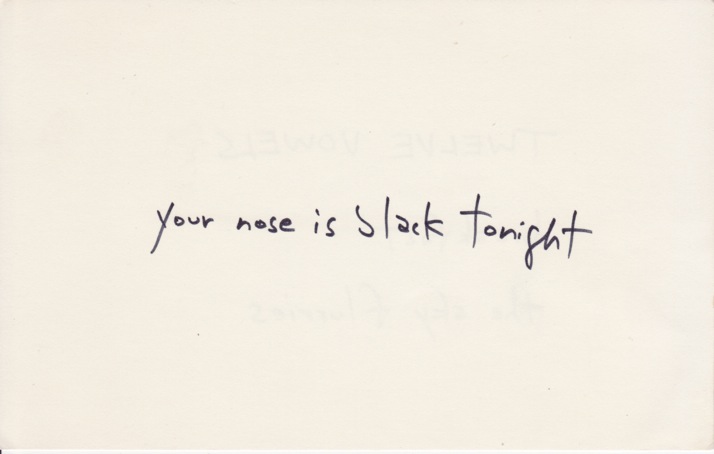 your nose is black tonight